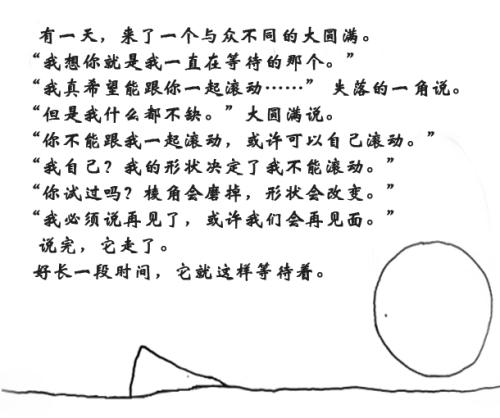 有一天，来了一个与众不同的大圆满。
“我想你就是我一直在等待的那个。”
“我真希望能跟你一起滚动……” 失落的一角说。
“但是我什么都不缺。”大圆满说。
“你不能跟我一起滚动，或许可以自己滚动。”
“我自己？我的形状决定了我不能滚动。”
“你试过吗？棱角会磨掉，形状会改变。”
“我必须说再见了，或许我们会再见面。”
说完，它走了。
好长一段时间，它就这样等待着。